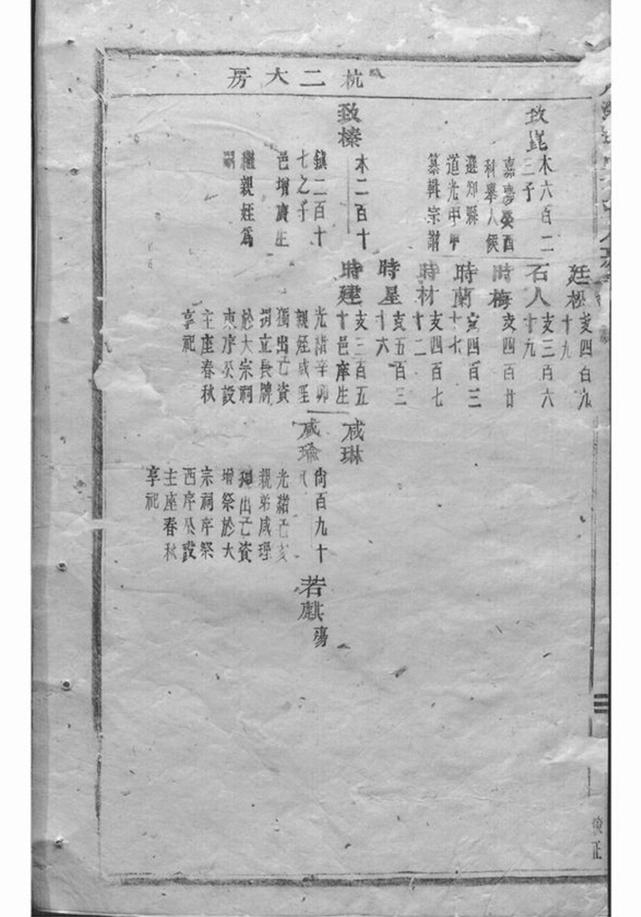 杭二大房
致崑
木六百二
三子
嘉慶癸酉
科舉人候
選知縣
道光甲申
纂輯宗譜
致榛
木二百十
鎮二百十
七之子
邑增廣生
繼親姪爲
嗣
廷松
支四百九
十九
石人
支三百六
十九
時梅
支四百廿
時蘭
支四百三
十七
時材
支四百七
十二
時星
支五百三
十六
時建
支三百五
十邑庠生
光緒辛卯
親姪咸瑆
獨出亡資
捐立長牌
於大宗祠
東序及設
主座春秋
享祀
咸琳
咸
尚百九十
八
光緒亡亥
親弟咸理
獨出亡資
增祭於大
宗祠序祭
西序及設
主座春秋
享祀
若麒
殤
正